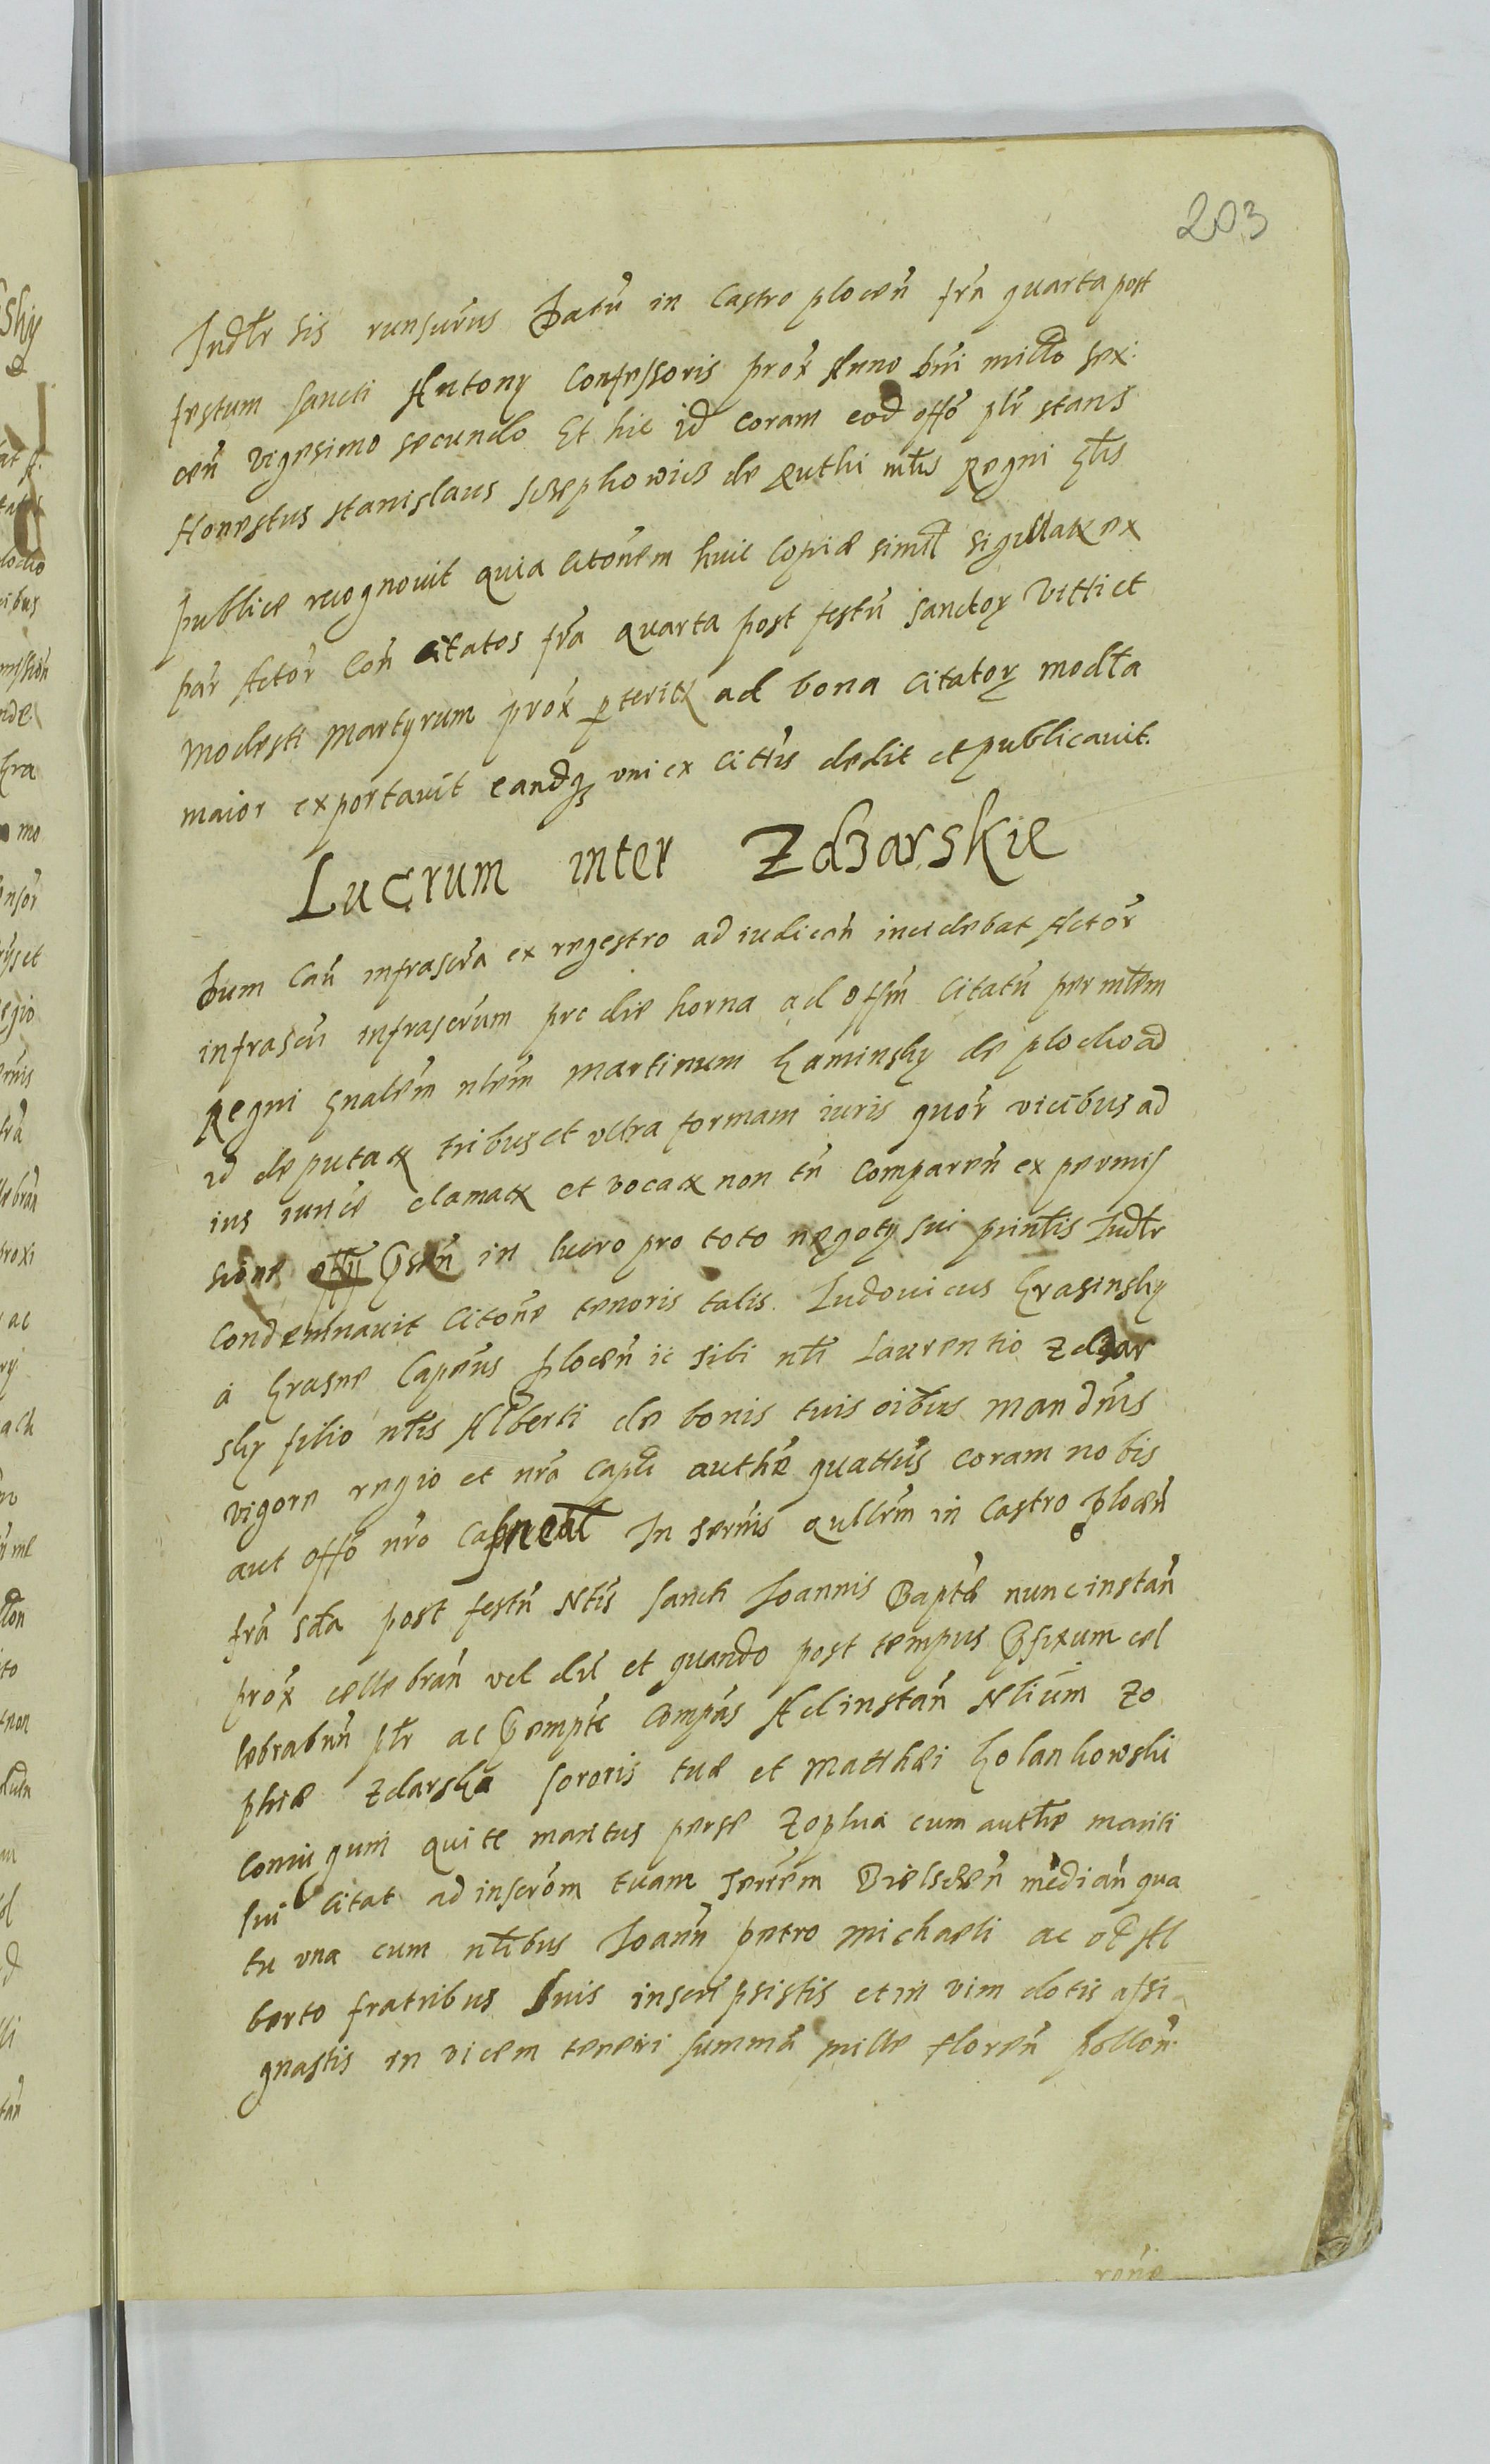 203
Iudlr sis runsurus Datū in Castro plocen̄ fr̄a quarta post
festum sancti Antonÿ Confessoris prox̄ Anno dn̄i millo sex:
cen̄ vigesimo secundo Et hic id coram eod offō plr̄ stans
Honestus Stanislaus de Ruthi mtr̄is Regni Glis
publice recognouit quia citōnem huic Copiæ simil sigillat ex
par Actōr Con̄ citatos fr̄a quarta post festū sanctor Vitti et
Modesti Martyrum prox̄ pterit ad bona citator modt̄a
maior exportauit eandq uni ex cittis dedit et publicauit.
Lucrum inter Zdzarskie
Dum Cau infrascra ex regestro ad iudican̄ incidebat Actōr
infrascr̄ infrascrum pro die horna ad offm̄ citatū per mtem
Regni Gnalem ntem Martinum Kaminsky de plocko ad
id deputat tribus et vltra formam iuris quor̄ vicibus ad
ius iunctē clamat et vocat non tn̄ Comparen̄ ex permis
sione offÿ psen̄ in lucro pro toto negotÿ sui printis Iudlr
Condemnauit Citōne tenoris talis. Ludouicus Krasinsky
a Krasne Capn̄us plocen̄ ic Tibi ntī Laurentio Zdzar
sky filio ntis Alberti de bonis tuis oib̄us mandm̄s
vigore regio et nr̄a Capli authē quattūs coram nobis
aut offō nr̄o Capneal In termis qullrm in Castro plocen̄
fr̄a sda post festū Ntis sancti Ioannis Baptæ nunc instan̄
prox̄ cellebran̄ vel du et quando post tempus pfixum cel
lebrabun̄ plr̄ ac pempte Compas Ad instan̄ Nlium Zo
phiæ Zdarska sororis tuæ et Matthæi Kolankowski
Coniugum qui te maritus perse Zophia cum authē mariti
sui citat ad inscrōm tuam Terrēm Bielscen̄ median̄ qua
tu vna cum ntībus Ioann̄ petro Michaeli ac ol Al
berto fratribus suis inscripsistis et in vim dotis assi
gnastis in vicem teneri summā mille floren̄ pollon̄
rone